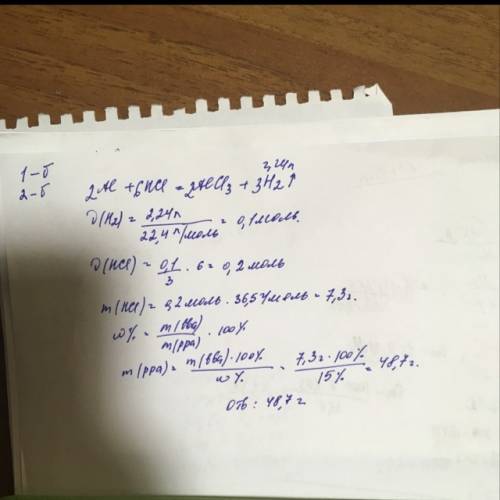 1-б
2-б
2,24л
2Al + 6HCl = 2AlCl3 + 3H2↑
ν(H2) = 2,24л / 22,4 л/моль = 0,1 моль.
ν(HCl) = 0,1 / 3 · 6 = 0,2 моль
m(HCl) = 0,2 моль · 36,5 г/моль = 7,3 г.
ω% = m(вва) / m(рра) · 100%
m(рра) = m(вва) · 100% / ω% = 7,3 г · 100% / 15% = 48,7 г.
Отв: 48,7 г.